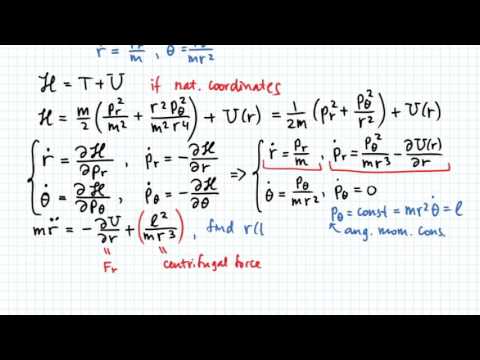 ṙ = p_r/m , θ̇ = p_θ/mr²
ℋ = T + U if nat. coordinates
ℋ = m/2 (p_r²/m² + r² p_θ²/m² r⁴) + U(r) = 1/2m (p_r² + p_θ²/r²) + U(r)
{ ṙ = ∂ℋ/∂p_r , ṗ_r = -∂ℋ/∂r => { ṙ = p_r/m , ṗ_r = p_θ²/mr³ - ∂U(r)/∂r
θ̇ = ∂ℋ/∂p_θ , ṗ_θ = -∂ℋ/∂θ θ̇ = p_θ/mr² , ṗ_θ = 0
p_θ = const = mr²θ̇ = ℓ
ang. mom. cons.
m r̈ = -∂U/∂r + (ℓ²/mr³) , find r(t
" "
F_r centrifugal force